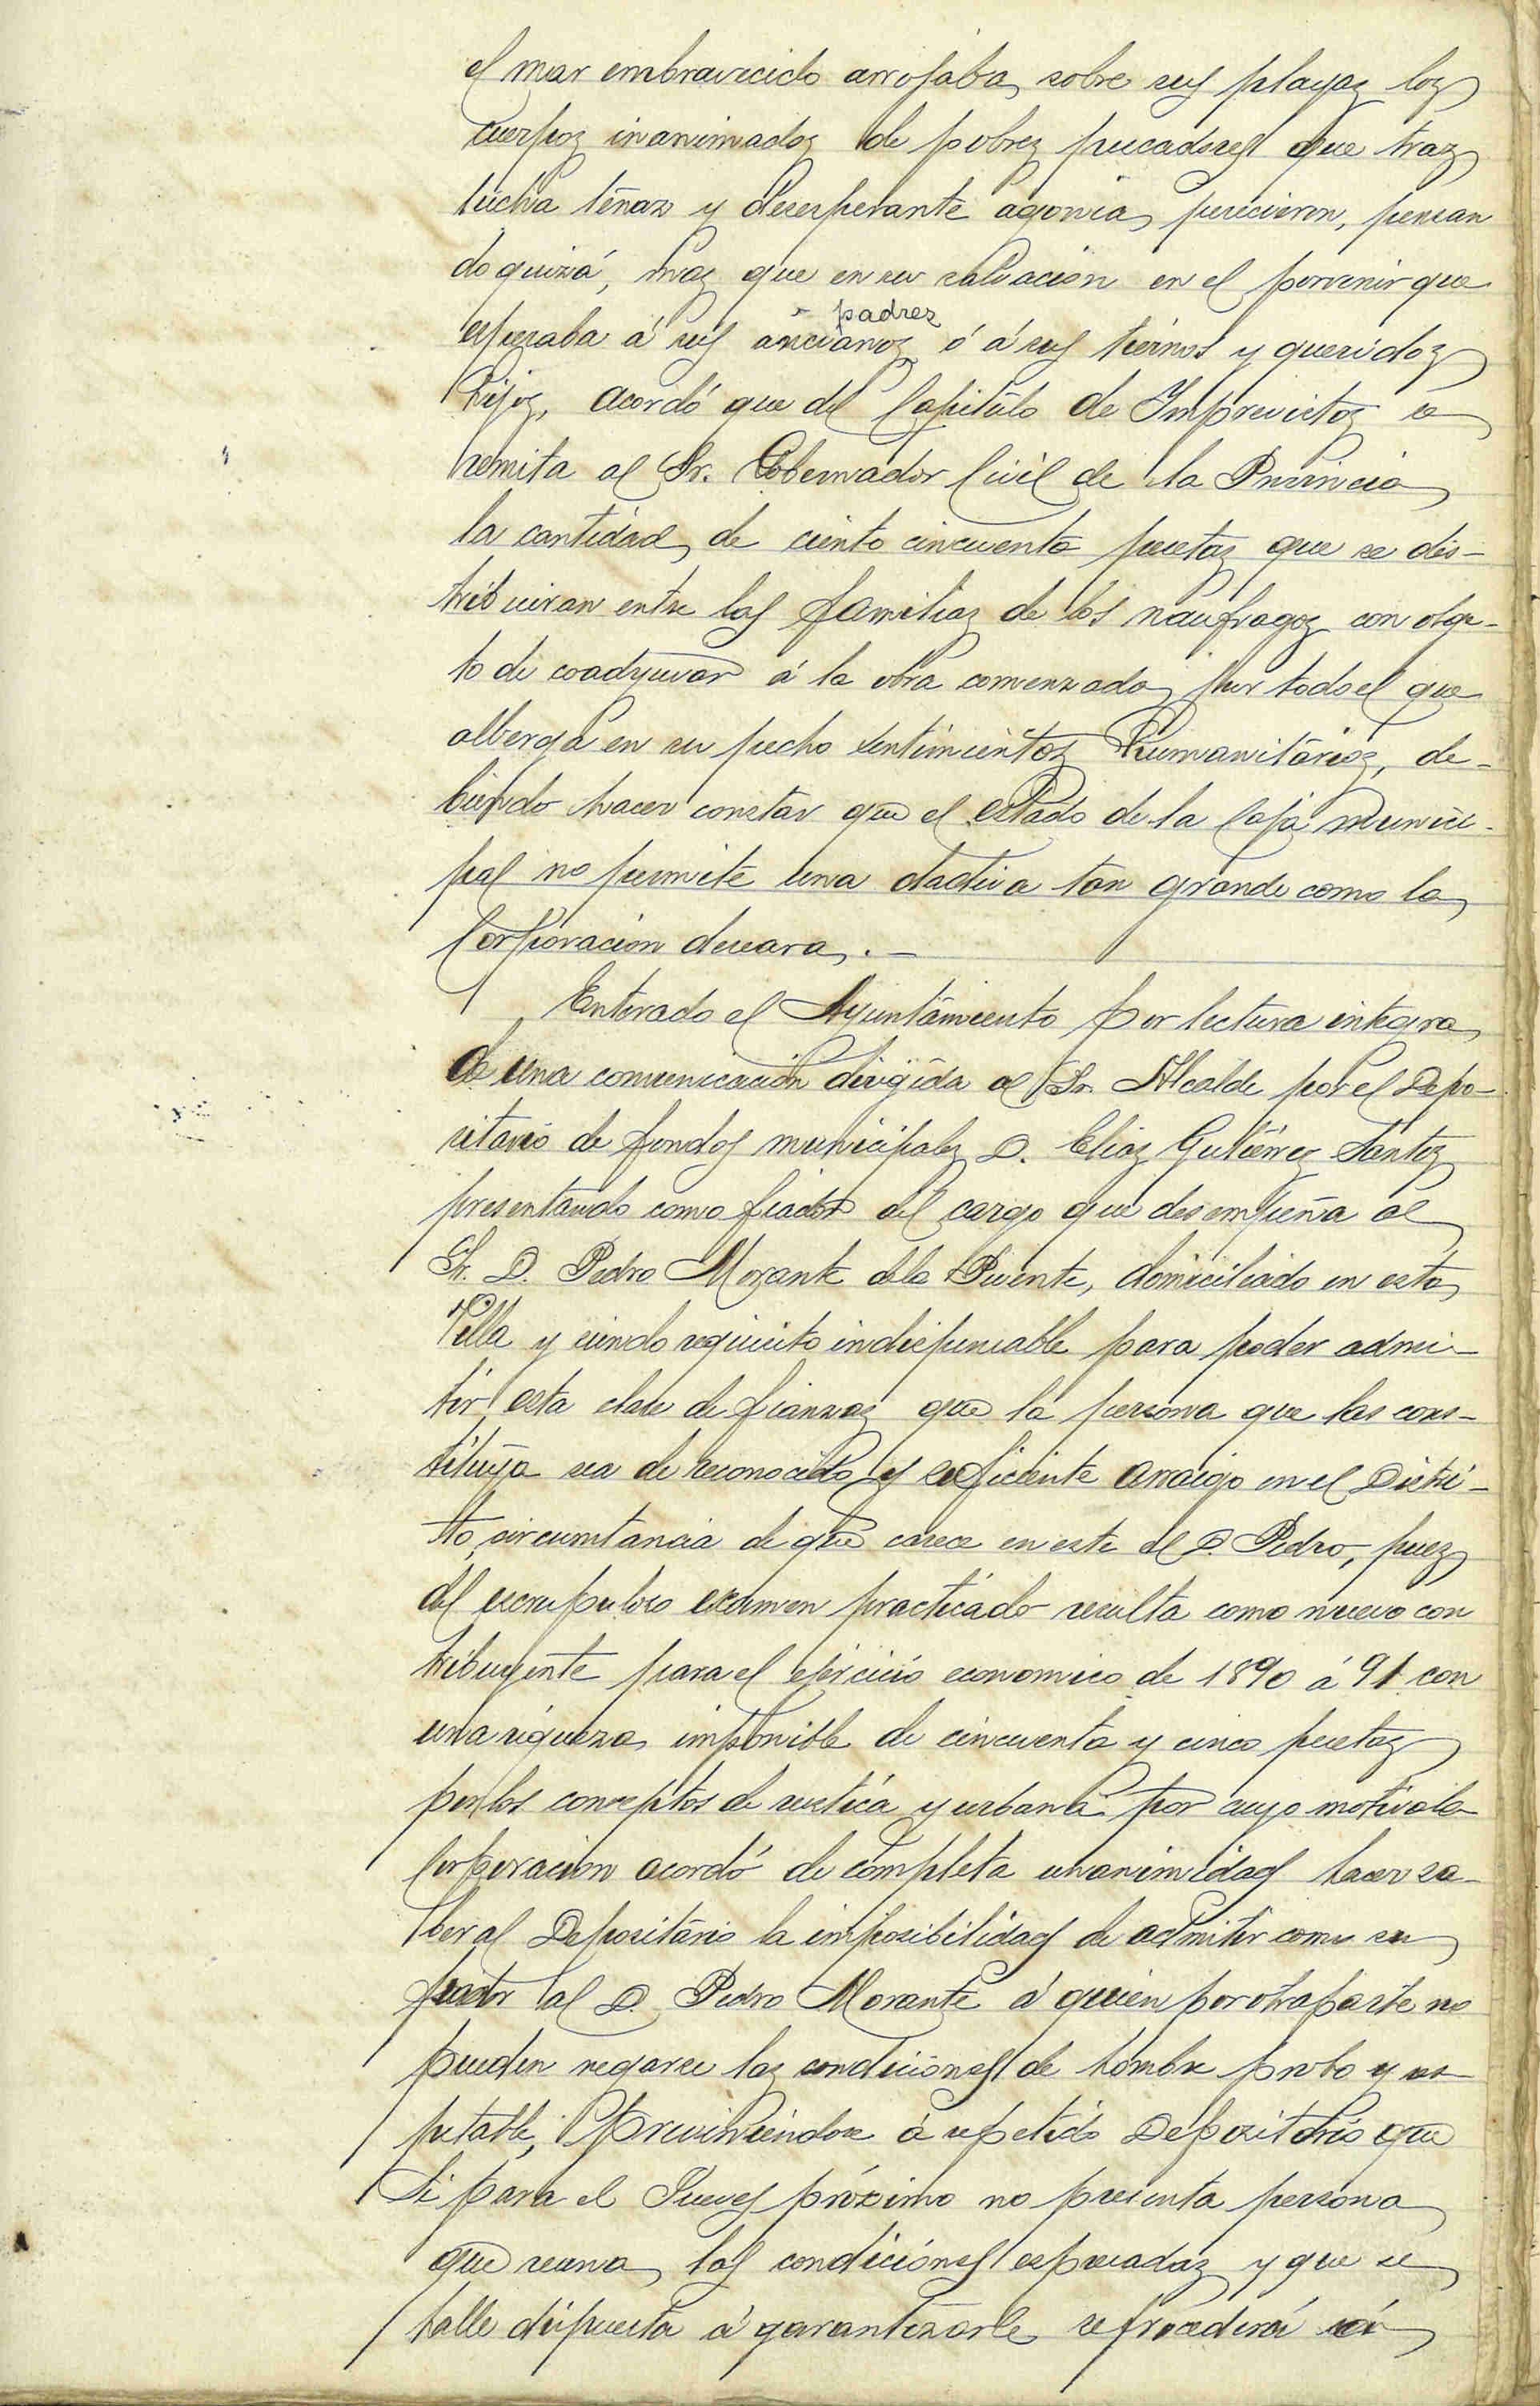 el mar embravecido arrojaba sobre sus playas los
cuerpos inanimados de pobres pescadores que tras
lucha tenaz y desesperante agonia perecieron, pensan
do quizá, mas que en su salvacion en el porvenir que
padres
esperaba á sus ancianos ó á sus tiernos y queridos
hijos, acordó que del Capitulo de Imprevistos se
remita al Sr. Gobernador Civil de la Provincia
la cantidad de ciento cincuenta pesetas que se dis-
tribuiran entre las familias de los naufragos con obge-
to de coadyuvar á la obra comenzada por todo el que
alberga en su pecho sentimientos humanitarios, de-
biendo hacer constar que el estado de la Caja munici-
pal no permite una dadiva tan grande como la
Corporacion deseara.-
Enterado el Ayuntamiento por lectura integra
de una comunicacion dirigida al Sr. Alcalde por el Depo-
sitario de fondos municipales D. Elias Gutierrez Santos
presentando como fiador del cargo que desempeña al
Sr. D. Pedro Morante de la Puente, domiciliado en esta
Villa y siendo requisito indispensable para poder admi-
tir esta clase de fianzas que la persona que las cons-
tituya sea de reconocido y suficiente arraigo en el Distri-
to, circumtancia de que carece en este el D. Pedro, pues
del escrupuloso examen practicado resulta como nuevo con
tribuyente para el ejercicio economico de 1890 á 91 con
una riqueza imponible de cincuenta y cinco pesetas
por los conceptos de rustica y urbana por cuyo motivo la
Corporacion acordó de completa unanimidad hacer sa-
ber al Depositario la imposibilidad de admitir como su
fiador al D. Pedro Morante á quien por otra parte no
pueden negarse las condiciones de hombre probo y res-
petable, previniendose á repetido Depositario que
si para el Jueves próximo no presenta persona
que reuna las condiciones espresadas y que se
halle dispuesta á garantizarle se procederá